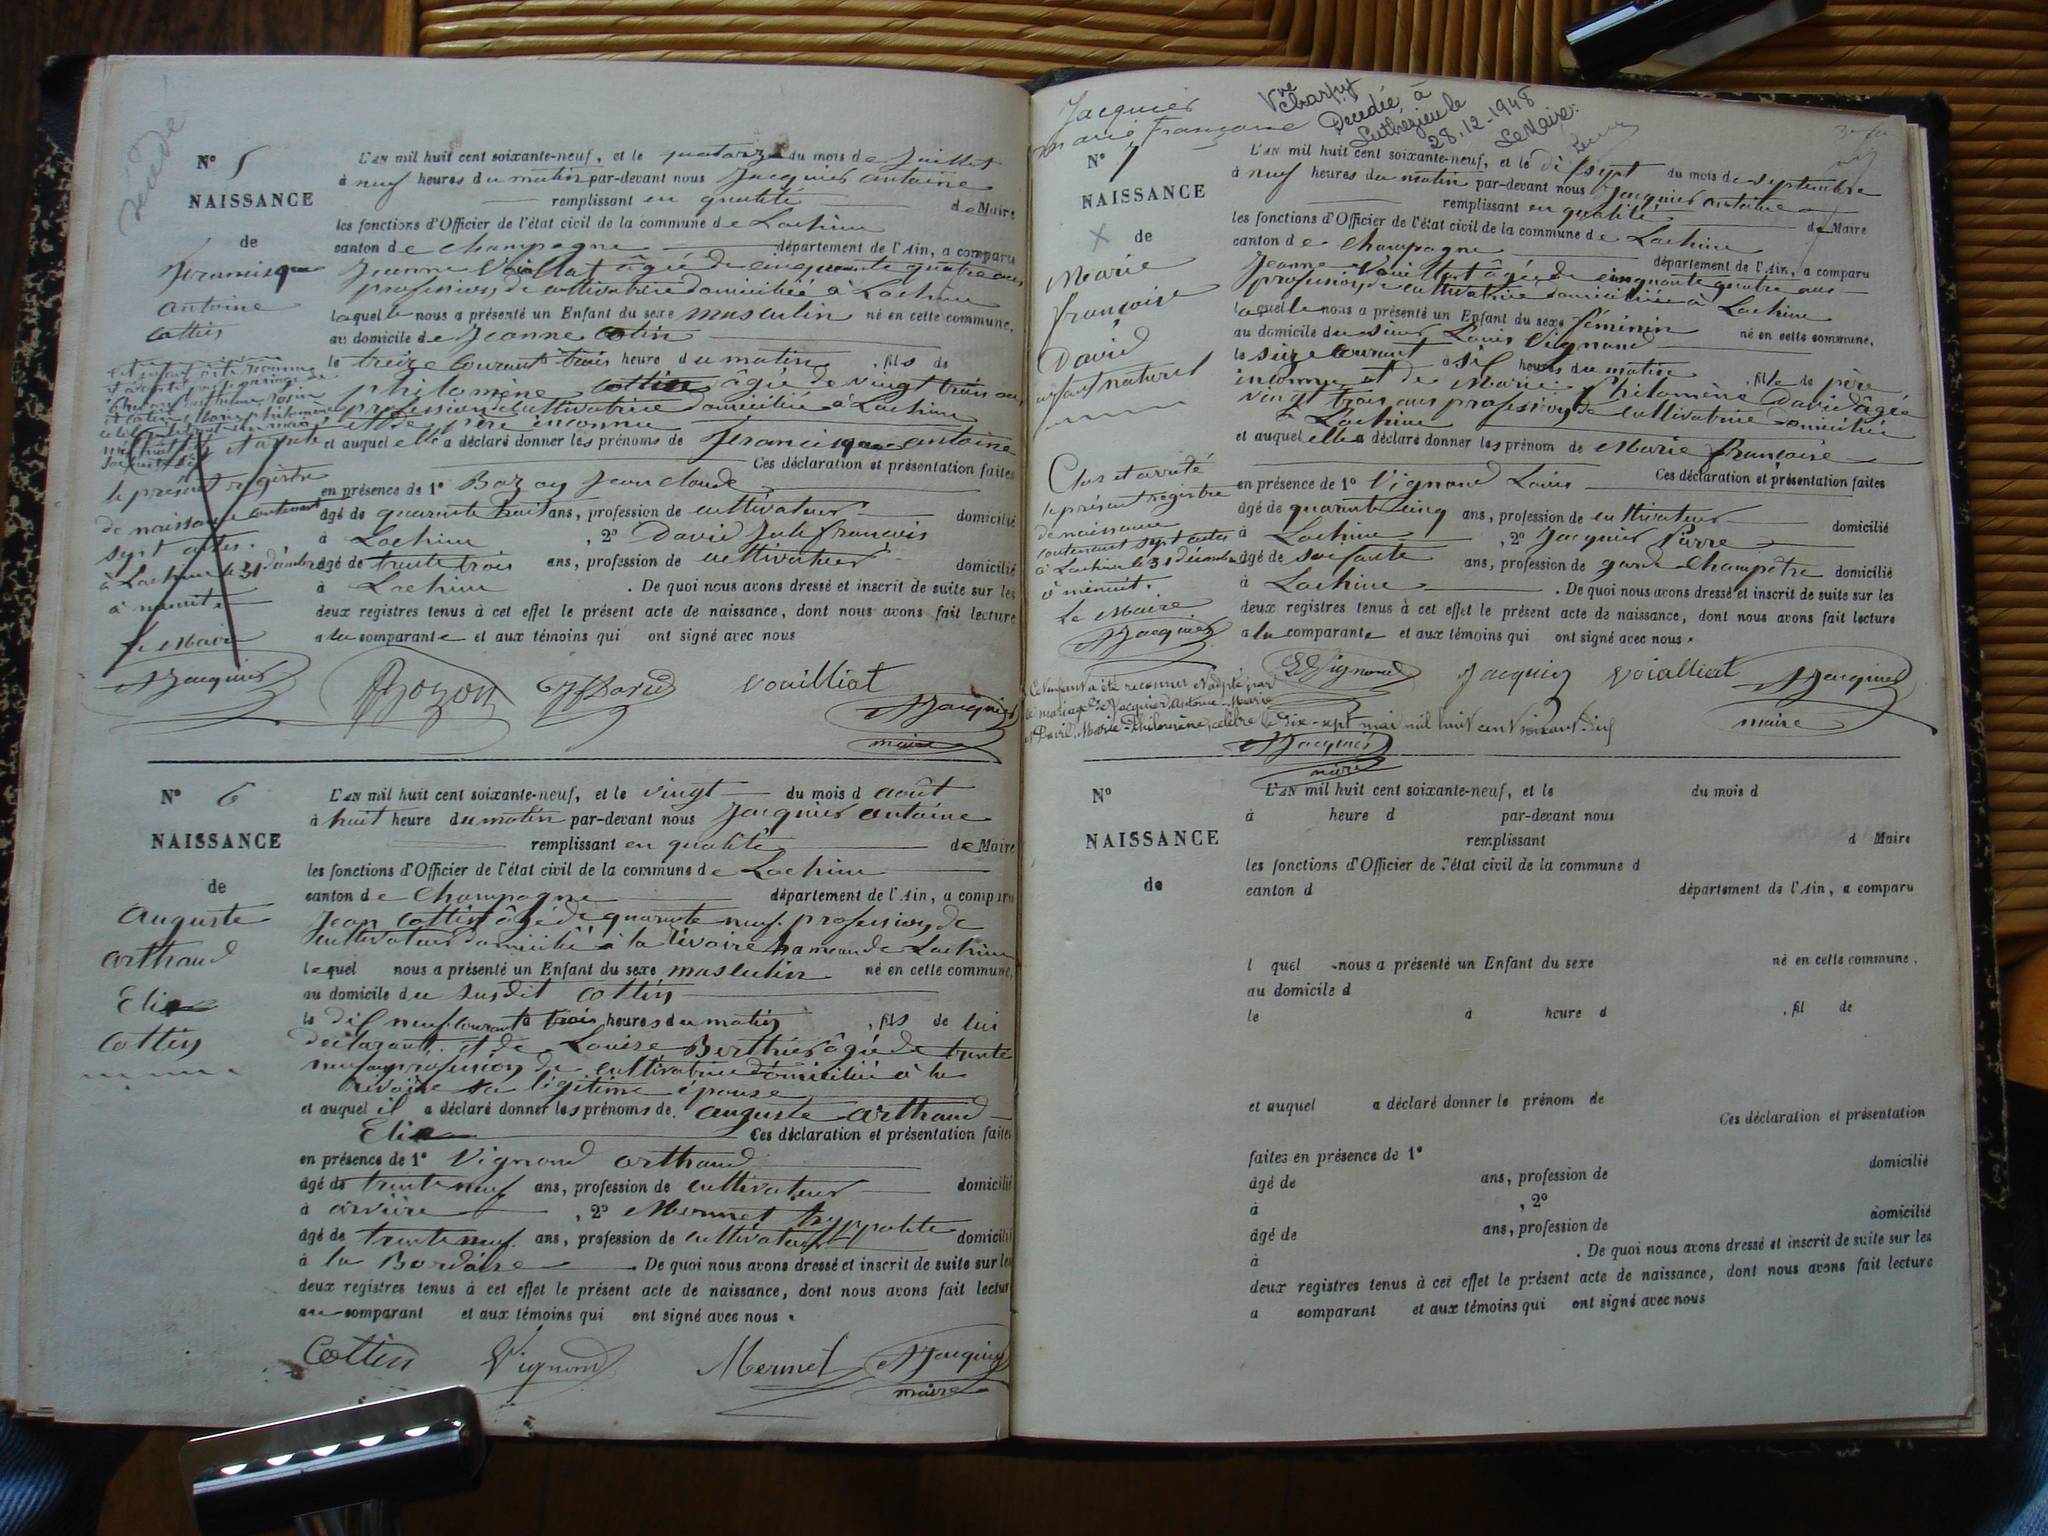 décédé
N° 5
NAISSANCE
de
Francisque
antoine
cottin
L'AN mil huit cent soixante-neuf, et le quatorze du mois de Juillet
à neuf heures du matin par-devant nous Jacquier antoine
remplissant en qualité de Maire
les fonctions d'Officier de l'état civil de la commune de Lochieu
canton de champagne département de l'Ain, a comparu
Jeanne Vaillat âgée de cinquante quatre ans
profession de cultivatrice domiciliée à Lochieu
laquelle nous a présenté un Enfant du sexe masculin né en cette commune,
au domicile de Jeanne cottin
le treize courant à trois heure du matin, fils de
philomène cottin âgée de vingt trois ans
profession de cultivatrice domiciliée à Lochieu
et de père inconnu
et auquel elle a déclaré donner les prénoms de Francisque antoine
Ces déclaration et présentation faites
en présence de 1° Bozon Jean claude
âgé de quarante huit ans, profession de cultivateur domicilié
à Lochieu, 2° David Jule françois
âgé de trente trois ans, profession de cultivateur domicilié
à Lochieu. De quoi nous avons dressé et inscrit de suite sur les
deux registres tenus à cet effet le présent acte de naissance, dont nous avons fait lecture
a la comparante et aux témoins qui ont signé avec nous
le présent registre
de naissance contenant
sept actes.
à Lochieu le 31 décembre
à minuit
Le Maire
Jacquier
Bozon David Vouilliat Jacquier
maire
N° 6
NAISSANCE
de
auguste
arthaud
Elie
cottin
L'AN mil huit cent soixante-neuf, et le vingt du mois d août
à huit heure du matin par-devant nous Jacquier antoine
remplissant en qualité de Maire
les fonctions d'Officier de l'état civil de la commune de Lochieu
canton de champagne département de l'Ain, a comparu
Jean cottin âgé de quarante neuf profession de
cultivateur domicilié à la rivoire hameau de Lochieu
lequel nous a présenté un Enfant du sexe masculin né en cette commune,
au domicile du susdit cottin
le dix neuf courant à trois heures du matin, fils de lui
déclarant et de Louise Berthier âgée de trente
neuf ans profession de cultivatrice domiciliée à la
rivoire sa légitime épouse
et auquel il a déclaré donner les prénoms de auguste arthaud
Elie Ces déclaration et présentation faites
en présence de 1° Vignond arthaud
âgé de trente neuf ans, profession de cultivateur domicilié
à arvière, 2° Mermet hippolite
âgé de trente neuf ans, profession de cultivateur domicilié
à la Bordèze. De quoi nous avons dressé et inscrit de suite sur les
deux registres tenus à cet effet le présent acte de naissance, dont nous avons fait lecture
au comparant et aux témoins qui ont signé avec nous.
Cottin Vignond Mermet Jacquier
maire
Jacquier
Marie Françoise
Vve Charpy
Décédée à
Luthézieu le
28.12-1948
Le Maire:
N° 7
NAISSANCE
X de
Marie
françoise
David
enfant naturel
L'AN mil huit cent soixante-neuf, et le dix sept du mois de septembre
à neuf heures du matin par-devant nous Jacquier antoine
remplissant en qualité de Maire
les fonctions d'Officier de l'état civil de la commune de Lochieu
canton de champagne département de l'Ain, a comparu
Jeanne Vouillat âgée de cinquante quatre ans
profession de cultivatrice domiciliée à Lochieu
laquelle nous a présenté un Enfant du sexe féminin né en cette commune,
au domicile du sieur Louis Vignond
le seize courant à six heures du matin, fille de père
inconnu et de Marie Philomène David âgée
vingt trois ans profession de cultivatrice domiciliée
à Lochieu
et auquel elle a déclaré donner les prénom de Marie françoise
Ces déclaration et présentation faites
en présence de 1° Vignond Louis
âgé de quarante cinq ans, profession de cultivateur domicilié
à Lochieu, 2° Jacquier Pierre
âgé de soixante ans, profession de garde champêtre domicilié
à Lochieu. De quoi nous avons dressé et inscrit de suite sur les
deux registres tenus à cet effet le présent acte de naissance, dont nous avons fait lecture
a la comparante et aux témoins qui ont signé avec nous.
Clos et arrêté
le présent registre
de naissance
contenant sept actes
à Lochieu le 31 décembre
à minuit.
Le Maire
Jacquier
Vignond Jacquier Voialliat Jacquier
maire
Cet enfant a été reconnu et adopté par
le mariage de Jacquier Antoine-Marie
et David Marie-Philomène, célébré le dix-sept mai mil huit cent soixante-dix
Jacquier
maire
N°
NAISSANCE
de
L'AN mil huit cent soixante-neuf, et le du mois d
à heure d par-devant nous
remplissant d Maire
les fonctions d'Officier de l'état civil de la commune d
canton d département de l'Ain, a comparu
l quel nous a présenté un Enfant du sexe né en cette commune,
au domicile d
le à heure d , fil de
et auquel a déclaré donner le prénom de
Ces déclaration et présentation
faites en présence de 1°
âgé de ans, profession de domicilié
à , 2°
âgé de ans, profession de domicilié
à . De quoi nous avons dressé et inscrit de suite sur les
deux registres tenus à cet effet le présent acte de naissance, dont nous avons fait lecture
a comparant et aux témoins qui ont signé avec nous